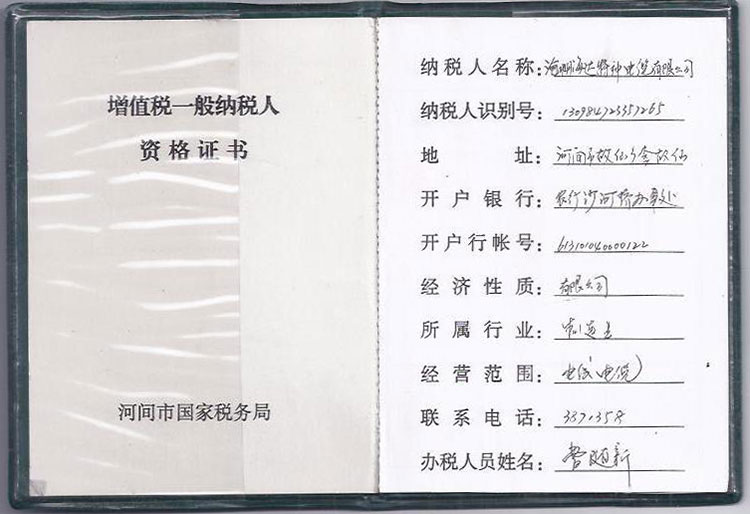 增值税一般纳税人
资格证书
河间市国家税务局
纳税人名称：沧州海达特种电缆有限公司
纳税人识别号：130984723357265
地址：河间市故仙乡
开户银行：农行沙河桥办事处
开户行帐号：613101040000122
经济性质：有限公司
所属行业：制造业
经营范围：电线（电缆）
联系电话：3871358
办税人员姓名：随新